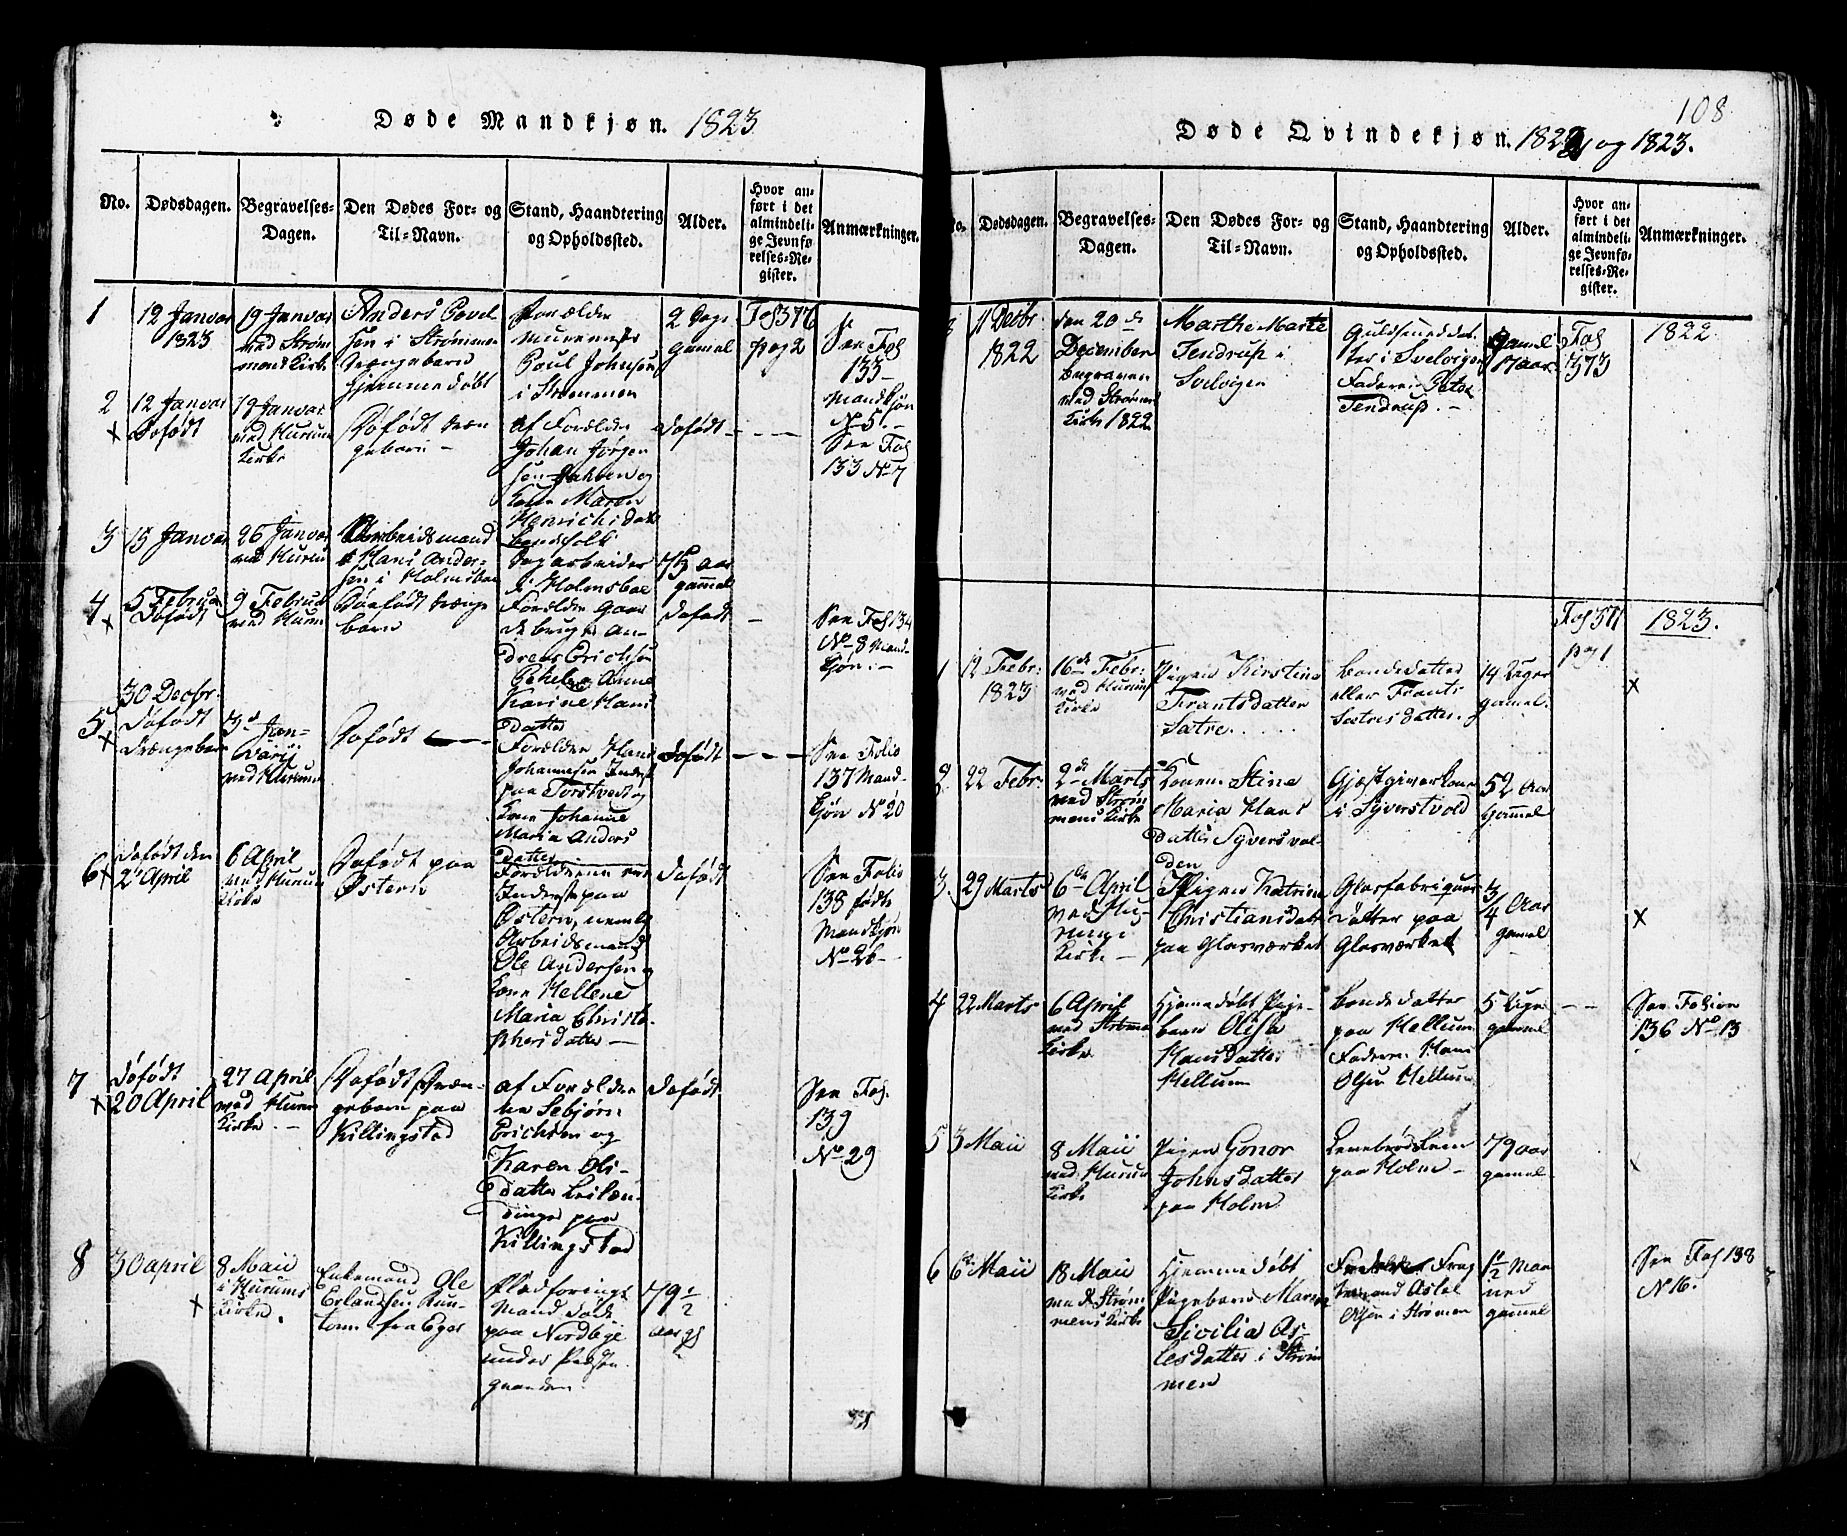 Døde Mandkjøn. 1823
No. Dødsdagen. Begravelses-Dagen. Den Dødes For- og Til-Navn. Stand, Haandtering og Opholdssted. Alder. Hvor anført i det almindelige Jevnførelses-Register. Anmærkninger.
1
12 Januar
1823
19 Januar
ved Strøm
mens Kirke
Anders Povel
sen i Strømmen
Drængebarn
hjemmedøbt
Forældre
Poul Johnsen
i Strømmen
2 Dage
gamel
Fol 376
pag 2
See Fol
135
Mandkjøn
No 5.
2
x
12 Januar
Døfødt
19 Januar
ved Hurum
Kirke
Døfødt Dræn
gebarn
af Forældre
Johan Jørgen
sen Jahren og
Kone Maren
Henrichsdatt
bondefolk
Døfødt
See Fol
133 No 7
3
15 Januar
26 Januar
ved Hurum
Arbeidsmand
Hans Ander-
sen i Holmsboe
Dagarbeider
i Holmsboe
aar
gammel
4
x
5 Februar
Døfødt
9 Februar
ved Hurum
Døefødt Drænge
barn
Forældre Gaar
debruger An-
dreas Erichsen
Anne
Karine Hans
datter
Døfødt
See Fol 134
No 8 Mand-
kjøn.
5
x
30 Decbr.
Døfødt
Drængebarn
3d Jan-
varii
ved Hurum
Døfødt
Forældre Hans
Johannesen Inderst
paa Torstvedt og
Kone Johanne
Maria Anders
datter
Døfødt
See Folio
137 Mand-
kjøn No 20
6
x
Døfødt den
2 April
6 April
ved Hurum
Kirke
Døfødt paa
Østern
Forældrene ere
Inderste paa
Østern, nemlig
Arbeidsmand
Ole Andersen og
Kone Hellene
Maria Christo-
phersdatter
Døfødt
See Folio
138 fødte
Mandkjøn
No 26
7
x
Døfødt
20 April
27 April
ved Hurum
Kirke
Døfødt Dræn-
gebarn paa
Killingstad
af Forældre
ne Sebjørn
Erichsen og
Karen Ols-
datter Leilæn-
dinge paa
Killingstad
Døfødt
See Fol.
139
No 29
8
x
30 april
8 Maii
i Hurums
Kirke.
Enkemand Ole
Erlandsen
fra Eger
Mand død
paa Nordbye
under Præste
gaarden.
79 1/2
aar
108
Døde Qvindekjøn. 1822 og 1823.
No. Dødsdagen. Begravelses-Dagen. Den Dødes For- og Til-Navn. Stand, Haandtering og Opholdssted. Alder. Hvor anført i det almindelige Jevnførelses-Register. Anmærkninger.
8
11 Decbr.
1822
den 20de
December
begraven
ved Strømen
Kirke 1822
Marthe Marie
Tendrup i
Svelvigen
Guldsmeddat
ter i Svelvigen
Faderen Peter
Tendrup.
gamel
17 aar.
Fol
373
1822
Fol 377
pag 1
1823.
1
12 Febr:
1823
16de Febr:
ved Hurum
Kirke
Pigen Kirstine
Frantsdatter
Sætre
bondedatter
eller Frants
Sætres datter.
14 Uger
gamel.
x
2.
22 Febr:
2de Marts
ved Strøm
mens Kirke
Konen Stine
Maria Hans
datter Syversvol-
den
Gjæstgiverkone
i Syverstvold
52 Aar
gammel
3.
29 Marts
6te April
ved Hu-
rums
Kirke
Pigen Katrine
Christiansdatt
paa Glasværket
Glasfabriqueur
datter paa
Glasværket
3/4 Aar
gamel
x
4
22 Marts
6 April
ved Strømen
Kirke
Hjemedøbt Pige-
barn Olisa
Hansdatter
Hellum
bondedatter
paa Hellum
Faderen Hans
Olsen Hellum
5 Uger
gammel
See Folion
136 No 13
5
3 Maii
8 Maii
ved Hurum
Kirke
Pigen Gonor
Johnsdatter
paa Holm
paa Holm
79 aar
gamel
x
6
6te Maii
18 Maii
ved Strøm
mens Kirke
Hjemmedøbt
Pigebarn Maren
Sivilia As-
lesdatter i Strøm
men
Asle
Olsen i Strømen
1 1/2 Maa
ned
gammel
See Fol 138
No 16.